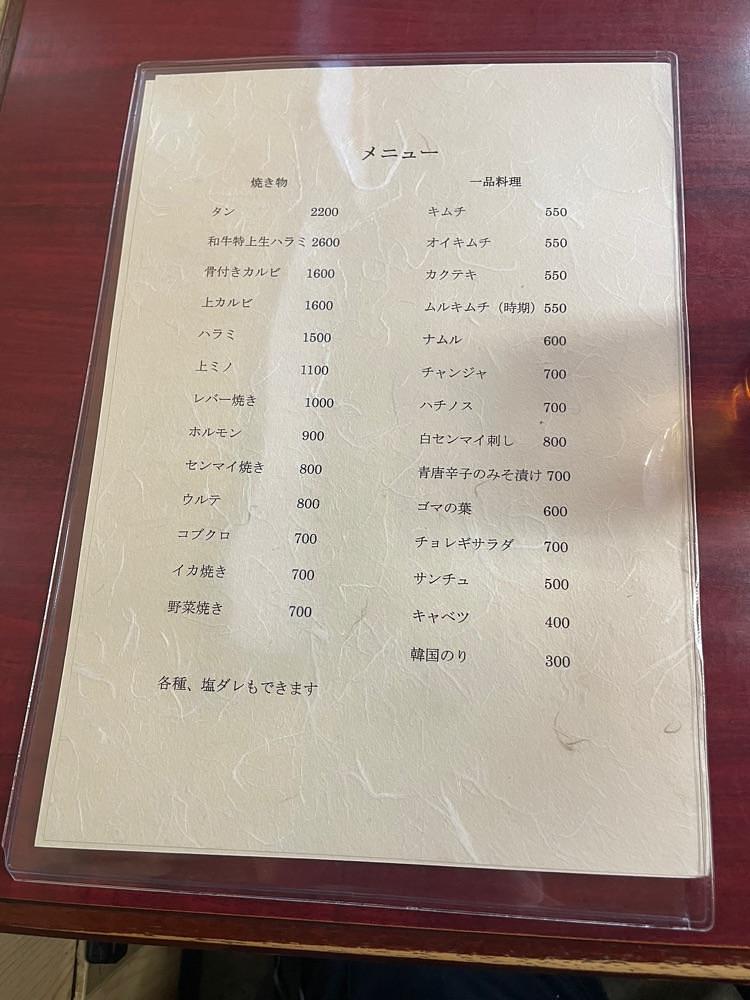 メニュー
焼き物
タン 2200
和牛特上生ハラミ 2600
骨付きカルビ 1600
上カルビ 1600
ハラミ 1500
上ミノ 1100
レバー焼き 1000
ホルモン 900
センマイ焼き 800
ウルテ 800
コブクロ 700
イカ焼き 700
野菜焼き 700
各種、塩ダレもできます
一品料理
キムチ 550
オイキムチ 550
カクテキ 550
ムルキムチ（時期） 550
ナムル 600
チャンジャ 700
ハチノス 700
白センマイ刺し 800
青唐辛子のみそ漬け 700
ゴマの葉 600
チョレギサラダ 700
サンチュ 500
キャベツ 400
韓国のり 300